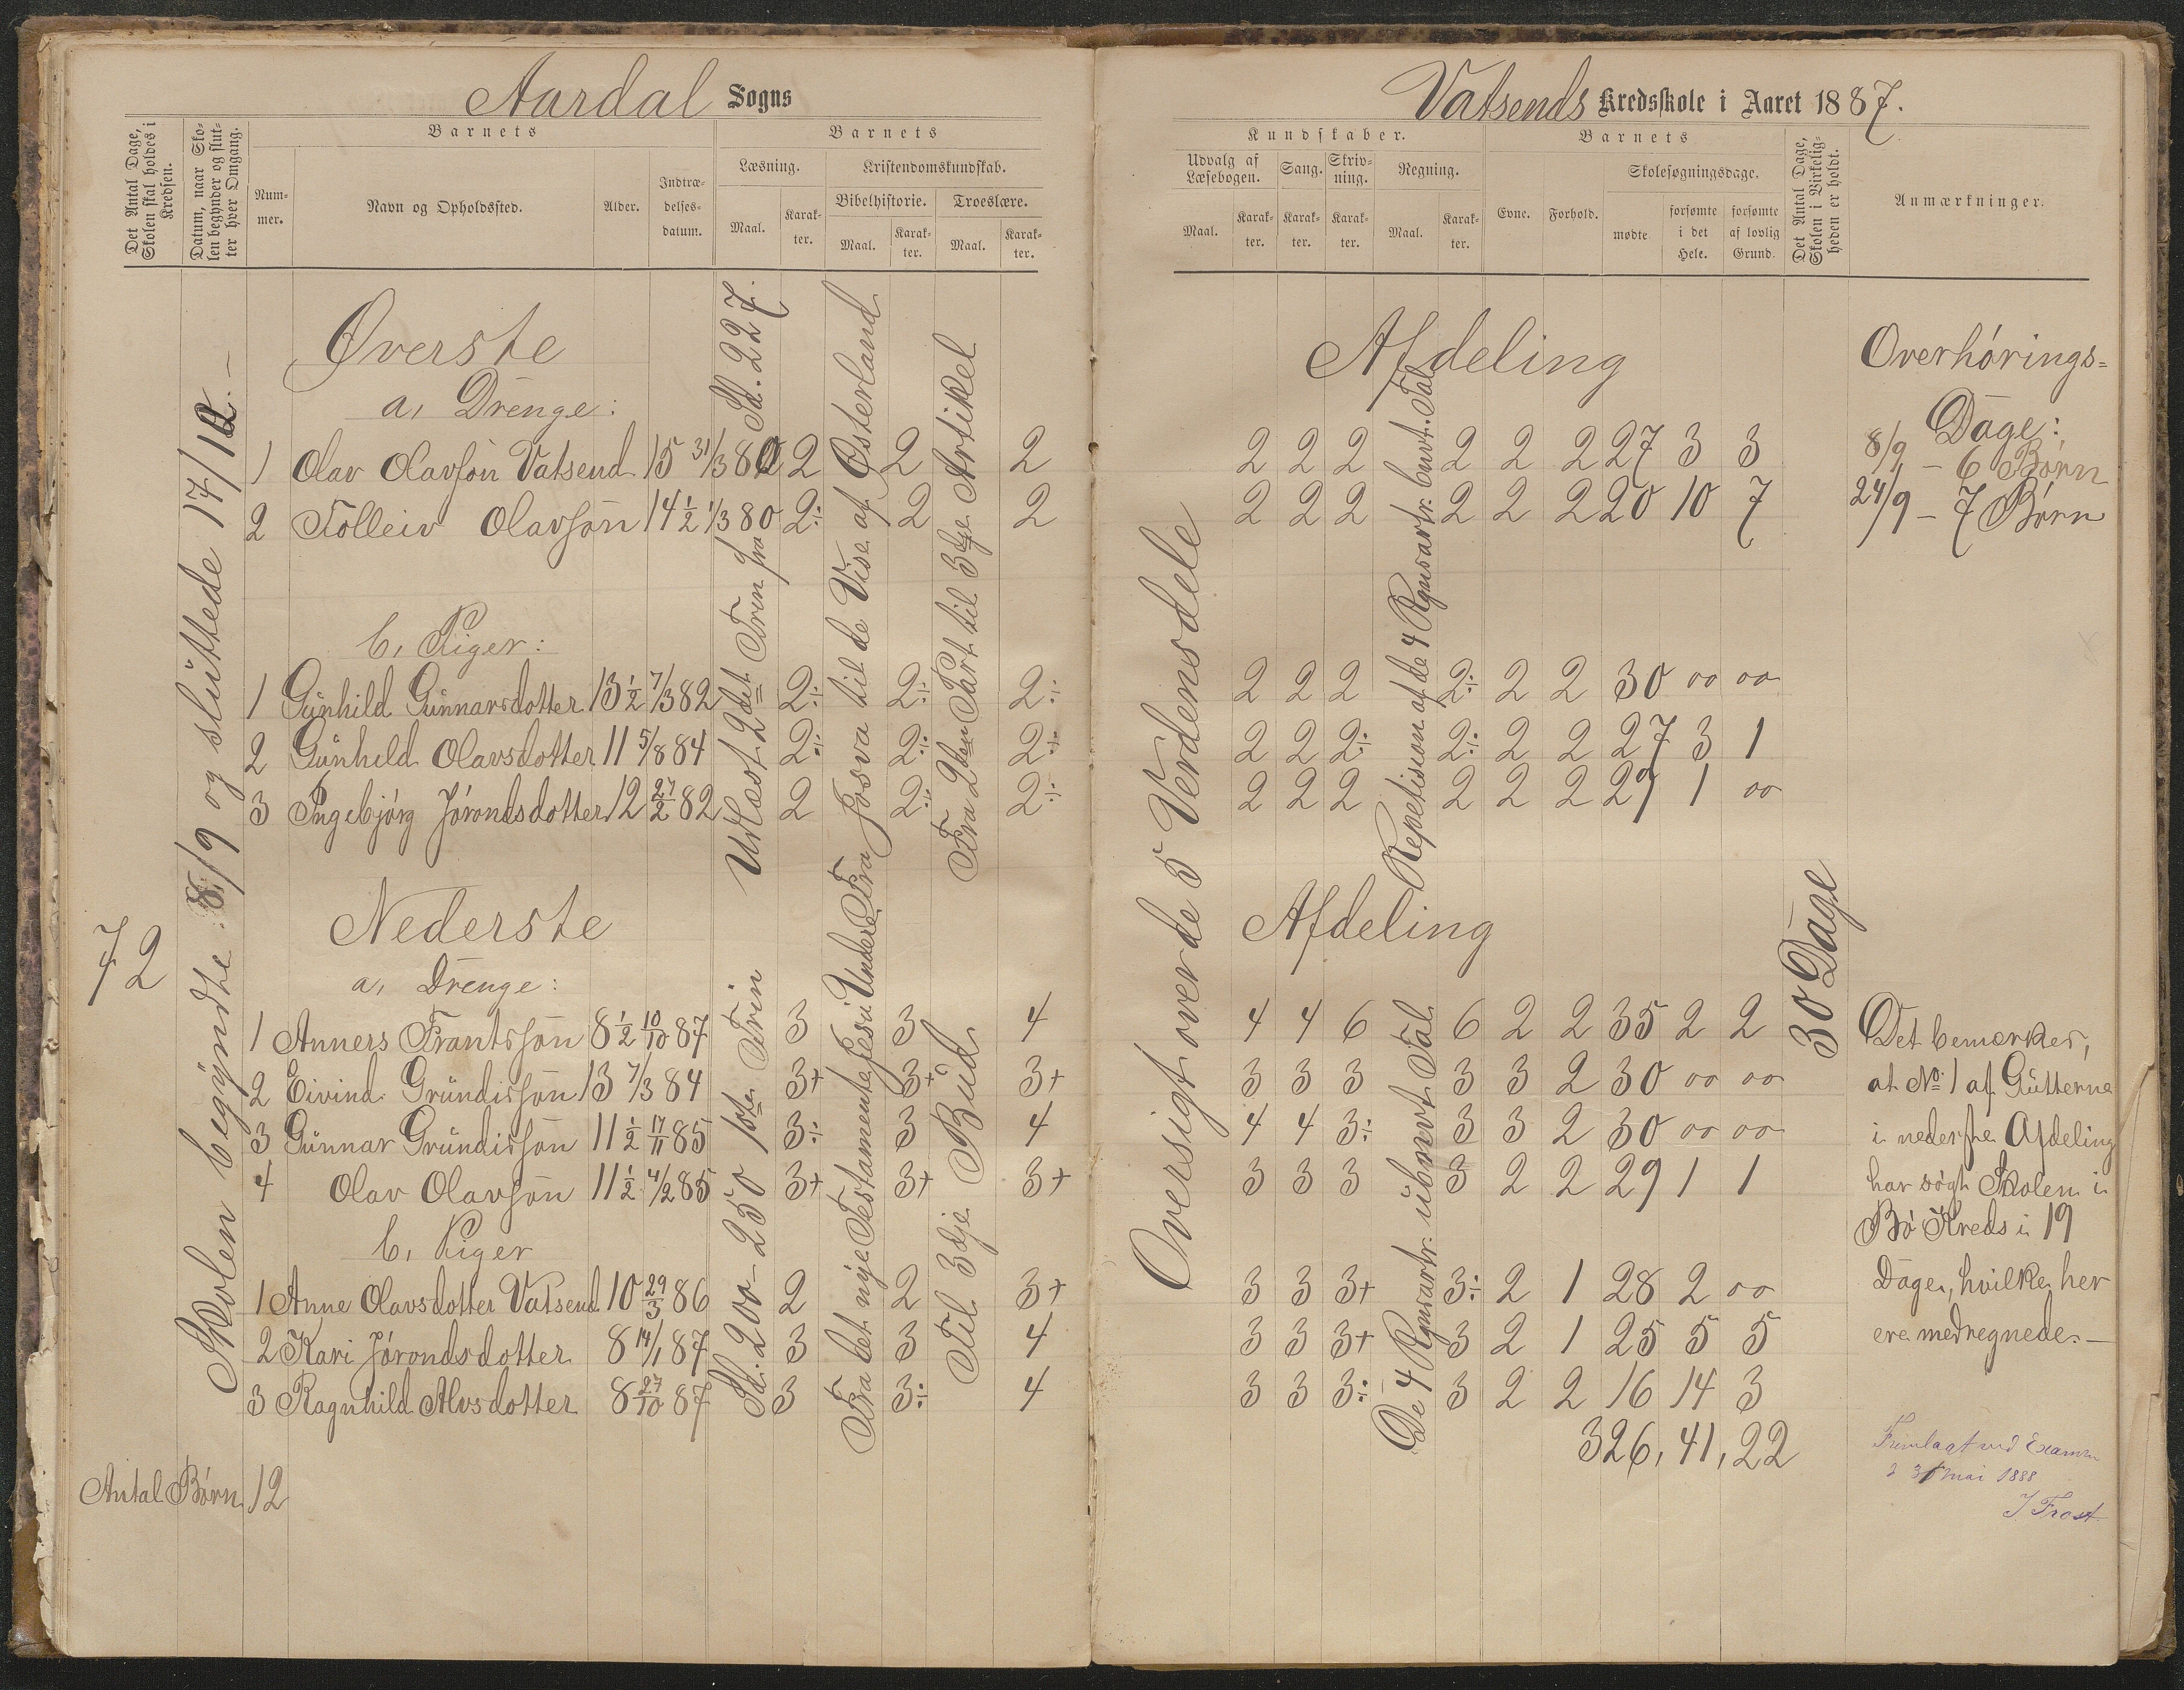 Aardal Sogns
Det Antal Dage, Skolen skal holdes i Kredsen.
Datum, naar Skolen begynder og slutter hver Omgang.
Barnets
Nummer.
Navn og Opholdssted.
Alder.
Indtrædelsesdatum.
Barnets
Læsning.
Maal.
Karakter.
Kristendomskundskab.
Bibelhistorie.
Maal.
Karakter.
Troeslære.
Maal.
Karakter.
72
Skolen begyndte 8/9 og sluttede 17/12.
Øverste
a, Drenge:
1 Olav Olavsøn Vatsend 15 31/3 80 2 2 2
2 Tolleiv Olavsøn 14½ 1/3 80 2÷ 2 2
b, Piger:
1 Gunhild Gunnarsdotter 13½ 7/3 82 2÷ 2÷ 2÷
2 Gunhild Olavsdotter 11 5/8 84 2÷ 2÷ 2÷
3 Ingebjørg Jørondsdotter 12 27/2 82 2 2÷ 2÷
Nederste
a, Drenge:
1 Anners Frantsøn 8½ 10/10 87 3 3 4
2 Eivind Grundisøn 13 7/3 84 3+ 3+ 3+
3 Gunnar Grundisøn 11½ 17/11 85 3÷ 3 4
4 Olav Olavsøn 11½ 4/2 85 3+ 3+ 3+
b, Piger
1 Anne Olavsdotter Vatsend 10 29/3 86 2 2 3+
2 Kari Jørondsdotter 8 14/1 87 3 3 4
3 Ragnhild Alvsdotter 8 27/10 87 3 3÷ 4
Antal Børn 12
Udlæst 2det Trin fra Sd. 227.
Fra Josva til de Vise af Østerland
Fra 2den Part til 3die Artikel
Sd. 200–250 1ste Trin
Fra det nye Testamente, Jesu Undere
Til 3dje Bud
Vatsends Kredsskole i Aaret 1887.
Kundskaber.
Udvalg af Læsebogen.
Maal.
Karakter.
Sang.
Karakter.
Skrivning.
Karakter.
Regning.
Maal.
Karakter.
Barnets
Evne.
Forhold.
Skolesøgningsdage.
mødte
forsømte i det Hele.
forsømte af lovlig Grund.
Det Antal Dage, Skolen i Virkeligheden er holdt.
Anmærkninger.
Afdeling
2 2 2 2 2 2 27 3 3
2 2 2 2 2 2 20 10 7
2 2 2 2÷ 2 2 30 00 00
2 2 2÷ 2÷ 2 2 27 3 1
2 2 2 2 2 2 29 1 00
Afdeling
4 4 6 6 2 2 35 2 2
3 3 3 3 3 2 30 00 00
4 4 3÷ 3 3 2 30 00 00
3 3 3 3 2 2 29 1 1
3 3 3+ 3÷ 2 1 28 2 00
3 3 3+ 3 2 1 25 5 5
3 3 3÷ 3 2 2 16 14 3
326, 41, 22
Oversigt over de 5 Verdensdele
Repetision af de 4 Regnearter benævt. Tal
De 4 Regnearter ubenævt Tal
30 Dage
Overhørings=
Dage:
8/9 – 6 Børn
24/9 – 7 Børn
Det bemærkes,
at No 1 af Gutterne
i nederste Afdeling
har søgt Skolen i
Bø Kreds i 19
Dage, hvilke her
ere medregnede. –
Fremlagt ved Examen
d 31 Mai 1888
J. Frost